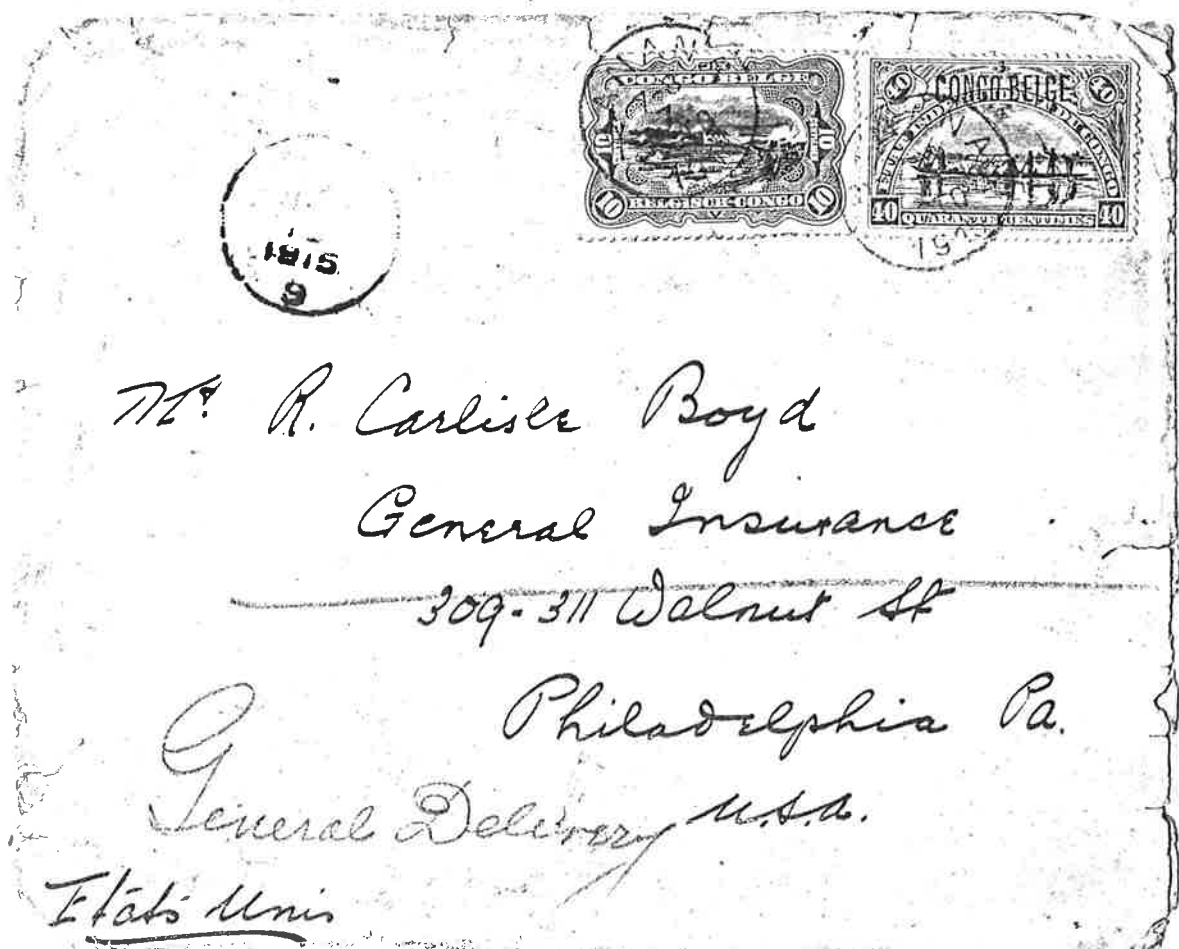 CONGO BELGE
10 10
BELGISCH CONGO
10 10
CONGO BELGE
40 40
DU CONGO
40 QUARANTE CENTIMES 40
Mr. R. Carlisle Boyd
General Insurance
309-311 Walnut St
Philadelphia Pa.
U.S.A.
General Delivery
Etats Unis